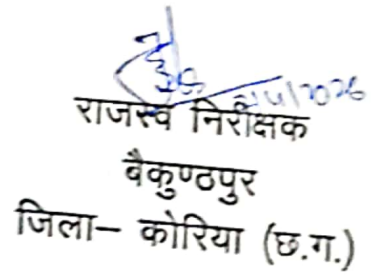 राजस्व निरीक्षक
बैकुण्ठपुर
जिला– कोरिया (छ.ग.)